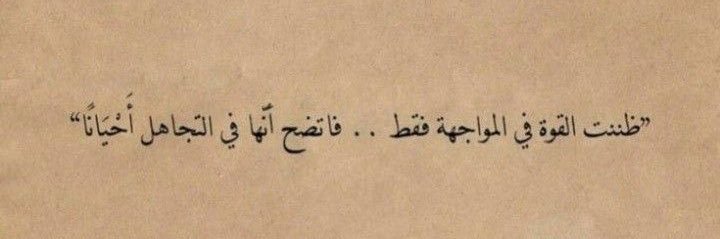 ”ظننت القوة في المواجهة فقط . . فاتضح أنّها في التجاهل أَحْيَانًا“